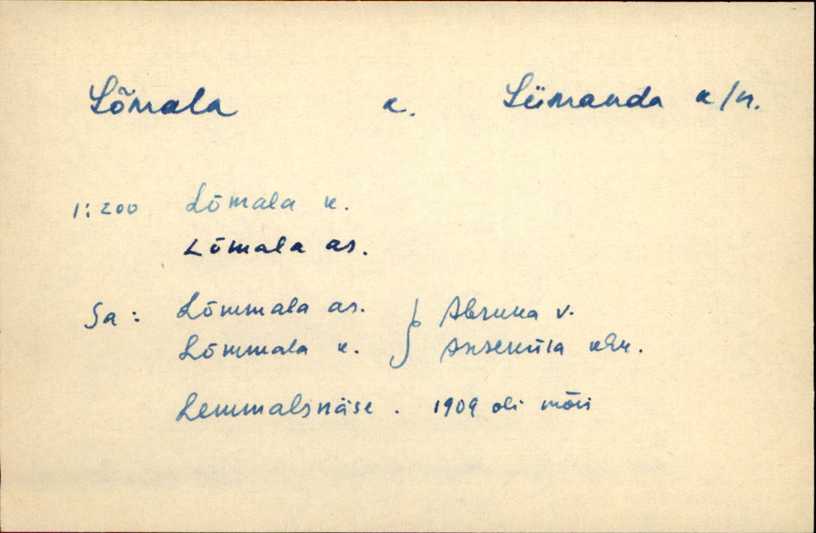 Lõmala k. Lümanda k/n.
1:200 Lõmala k.
Lõmala as.
Sa: Lõmmala as. } Abruka v.
Lõmmala k. } Anseküla khk.
Lemmalsnäse. 1909 oli mõis